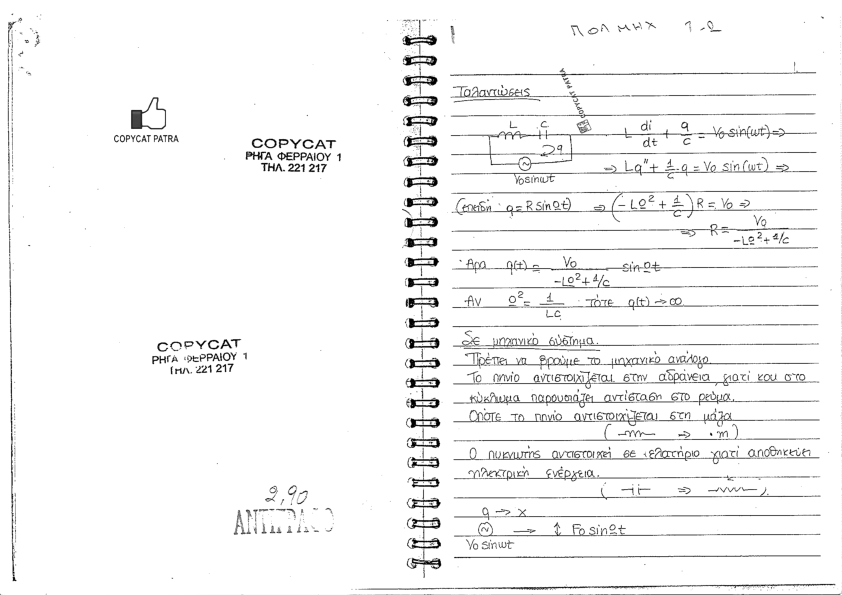 COPYCAT PATRA
COPYCAT
ΡΗΓΑ ΦΕΡΡΑΙΟΥ 1
ΤΗΛ. 221 217
COPYCAT
ΡΗΓΑ ΦΕΡΡΑΙΟΥ 1
ΤΗΛ. 221 217
2,90
ΑΝΤΙΓΡΑΦΟ
ΠΟΛ ΜΗΧ 1-2
COPYCAT PATRA
Ταλαντώσεις
L C
q
V₀sinωt
L di/dt + q/c = V₀ sin(ωt) ⇒
⇒ Lq'' + 1/c · q = V₀ sin(ωt) ⇒
(επειδή q = R sinΩt) ⇒ (-LΩ² + 1/c) R = V₀ ⇒
⇒ R = V₀/(-LΩ² + 1/c)
Άρα q(t) = V₀/(-LΩ² + 1/c) sinΩt
Αν Ω² = 1/LC τότε q(t) → ∞
Σε μηχανικό σύστημα.
Πρέπει να βρούμε το μηχανικό ανάλογο.
Το πηνίο αντιστοιχίζεται στην αδράνεια, γιατί και στο
κύκλωμα παρουσιάζει αντίσταση στο ρεύμα.
Οπότε το πηνίο αντιστοιχίζεται στη μάζα
( ⇒ ·m)
Ο πυκνωτής αντιστοιχεί σε ελατήριο γιατί αποθηκεύει
ηλεκτρική ενέργεια.
( ⊣⊢ ⇒ k ).
q → x
→ ↕ F₀ sinΩt
V₀ sinωt